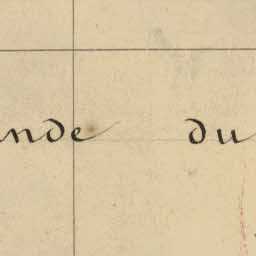 nde du